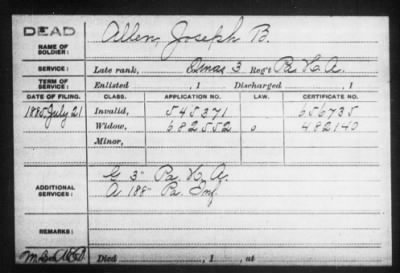 DEAD
NAME OF SOLDIER: Allen, Joseph B.
SERVICE: Late rank, 3 Reg't Pa. H. A.
TERM OF SERVICE: Enlisted , 1 Discharged , 1
DATE OF FILING. CLASS. APPLICATION NO. LAW. CERTIFICATE NO.
1885 July 21 Invalid, 545371 656735
Widow, 682552 482140
Minor,
ADDITIONAL SERVICES: G 3" Pa. H. A.
A 188" Pa. Inf
REMARKS:
Died , 1 , at